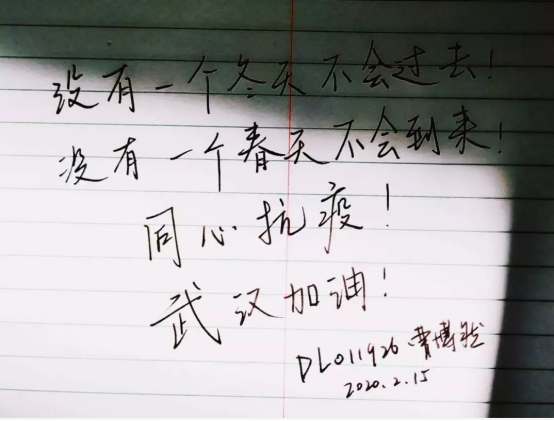 没有一个冬天不会过去！
没有一个春天不会到来！
同心抗疫！
武汉加油！
DL011926 曹博
2020.2.15